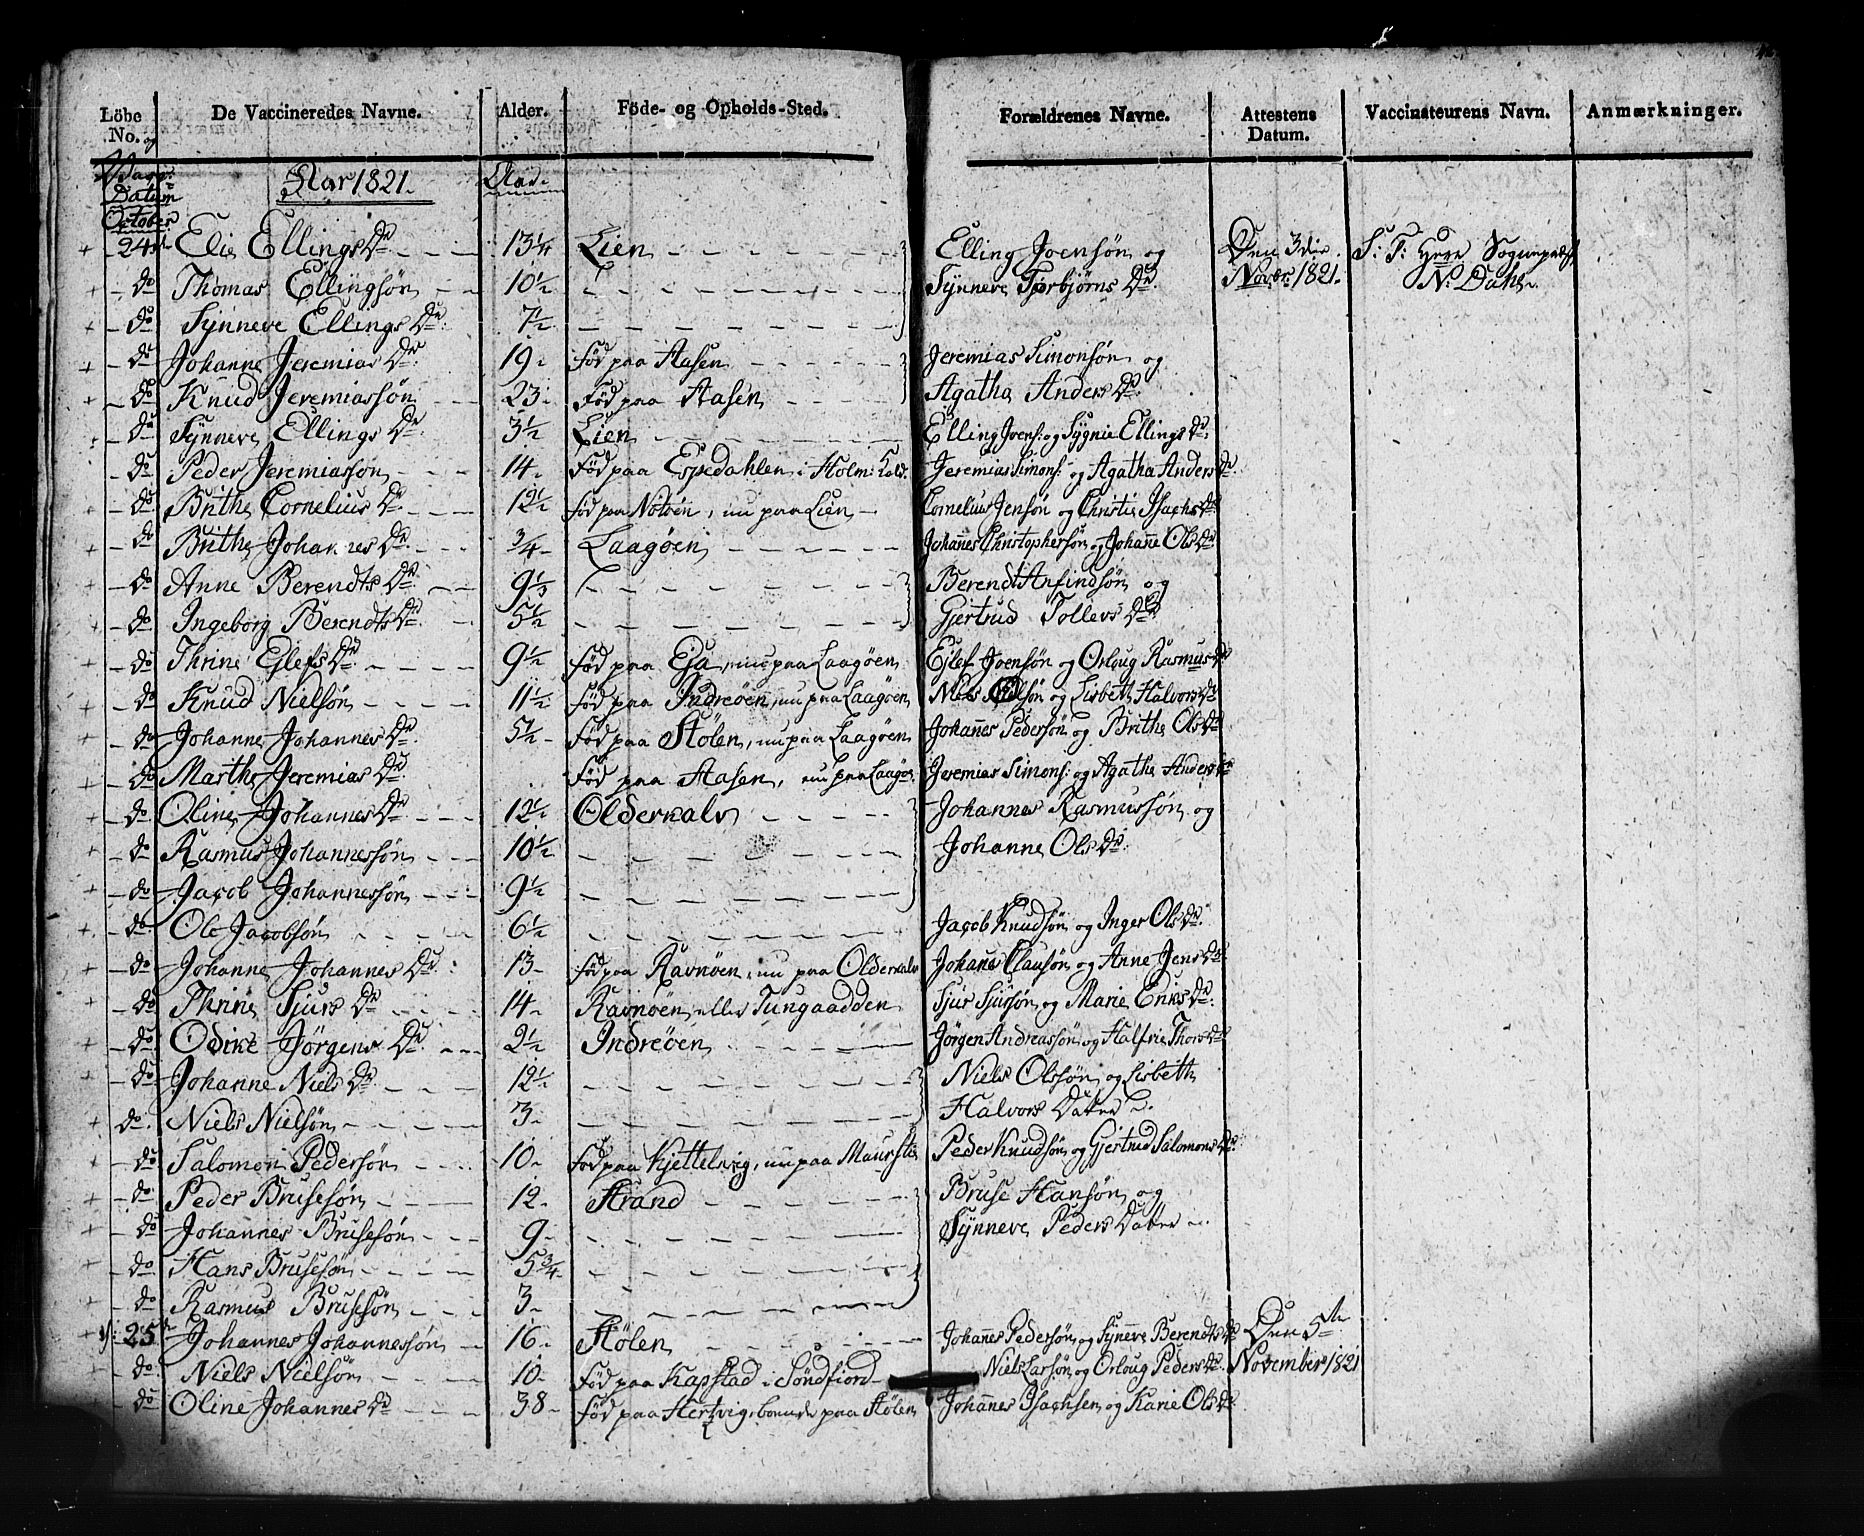 Löbe No. og Vacc. Datum | De Vaccineredes Navne. | Alder. | Föde- og Opholds-Sted. | Forældrenes Navne. | Attestens Datum. | Vaccinateurens Navn. | Anmærkninger.
October | Aar 1821. | Aar.
+ 24de | Elie Ellings Dr | 13 1/4 | Lien | Elling Joensøn og | Den 3die | S: T: Herr Sogneprest
+ do | Thomas Ellingsøn | 10 1/2 | | Synneve Torbjørns Dr. | Novbr. 1821. | N: Dahl
+ do | Synneve Ellings Dr. | 7 1/2
+ do | Johanne Jeremias Dr. | 19 | Fød paa Aasen | Jeremias Simonsøn og
+ do | Knud Jeremiassøn | 23 | Fød paa Aasen | Agatha Anders Dr.
do | Synneve Ellings Dr. | 3 1/2 | Lien | Elling Joens: og Sygnie Ellings Dr.
+ do | Peder Jeremiassøn | 14 | Fød paa Espedahlen i Holm: | Jeremias Simons: og Agatha Anders Dr.
+ do | Brithe Cornelius Dr. | 12 1/2 | fød paa Notøen, nu paa Lien | Cornelius Jensøn og Christie Isachs Dr
+ do | Brithe Johannes Dr. | 3/4 | Laagøen | Johannes Christophersøn og Johanne Ols Dr
+ do | Anne Berendts Dr. | 9 1/2 | | Berendt Anfindsøn og
+ do | Ingeborg Berendts Dr. | 5 1/2 | | Gjertrud Tollevs Dr
+ do | Thrine Ejlefs Dr. | 9 1/2 | Fød paa Eja, nu paa Laagøen | Ejlef Joensøn og Orloug Rasmus Dr
+ do | Knud Nielsøn | 11 1/2 | Fød paa Indreøen, nu paa Laagøen | Niels Nielsøn og Lisbeth Halvors Dr
+ do | Johanne Johannes Dr. | 5 1/2 | Fød paa Stølen, nu paa Laagøen | Johannes Pedersøn og Brithe Ols Dr
+ do | Marthe Jeremias Dr. | | Fød paa Aasen, nu paa Laagøe | Jeremias Simons: og Agatha Anders Dr
+ do | Oline Johannes Dr. | 12 1/2 | Olderkalv | Johannes Rasmussøn og
+ do | Rasmus Johannessøn | 10 1/2 | | Johanne Ols Dr.
+ do | Jacob Johannessøn | 9 1/2
+ do | Ole Jacobsøn | 6 1/2 | | Jacob Knudsøn og Inger Ols Dr.
+ do | Johanne Johannes Dr. | 13 | Fød paa Ravnøen, nu paa Olderkalv | Johannes Clausøn og Anne Jens Dr
+ do | Thrine Sjurs Dr | 14 | Ravnøen eller Tungaadden | Sjur Sjursøn og Marie Eriks Dr.
+ do | Odike Jörgens Dr. | 2 1/2 | Indreøen | Jörgen Andreassøn og Halfrie Thors Dr
+ do | Johanne Niels Dr. | 12 1/2 | | Niels Olssøn og Lisbeth
+ do. | Niels Nielsøn | 3 | | Halvors Datter
+ do | Salomon Pedersøn | 10 | Fød paa Kjettelvig, nu paa Maurstie | Peder Knudsøn og Gjertrud Salomons Dr.
+ do | Peder Brusesøn | 12 | Strand | Bruse Hansøn og
+ do | Johannes Brusesøn | 9 | | Synneve Peders Datter
+ do | Hans Brusesøn | 5 3/4
+ do | Rasmus Brusesøn | 3
25de | Johannes Johannessøn | 16 | Stølen | Johannes Pedersøn og Synneve Berendts Dr | Den 5te
do | Niels Nielsøn | 10 | Fød paa Kapstad i Søndfiord | Niels Larsøn og Orloug Peders Dr. | November 1821
do | Oline Johannes Dr | 38 | Fød paa Hertvig, boende paa Stølen | Johannes Isachsen og Karie Ols Dr.